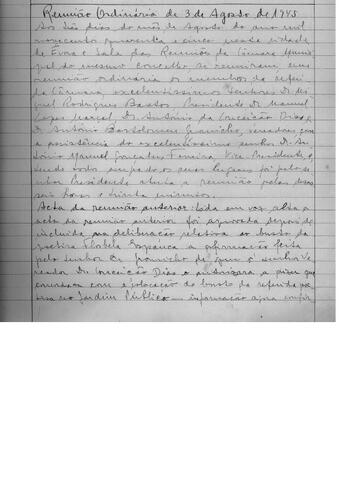 Reunião Ordinária de 3 de Agosto de 1945
Aos três dias do mês de Agosto do ano mil
novecentos quarenta e cinco nesta cidade
de Évora e Sala das Reuniões da Câmara Munici
pal do mesmo concelho se reuniram em
reunião ordinária os membros da referi
da Câmara, excelentíssimos Senhores Dr. Mi
guel Rodrigues Bastos Presidente Dr. Manuel
Lopes Marçal, Dr. António da Conceição Dias, e
Dr. António Bartolomeu Gromicho, vereadores com
a assistência do excelentíssimo senhor Dr. An
tónio Manuel Gonçalves Ferreira, Vice Presidente, e
sendo todos ocupado os seus lugares foi pelo se
nhor Presidente aberta a reunião pelas deza
seis horas e trinta minutos.
Acta da reunião anterior: Lida em voz alta a
acta da reunião anterior foi aprovada depois de
incluida na deliberação relativa ao busto da
poetisa Florbela Espanca a afirmação feita
pelo senhor Dr. Gromicho de que o senhor Ve
reador Dr. Conceição Dias o autorizara a dizer que
concordava com a colocação do busto da referida po
etisa no Jardim Público — informação agora confir